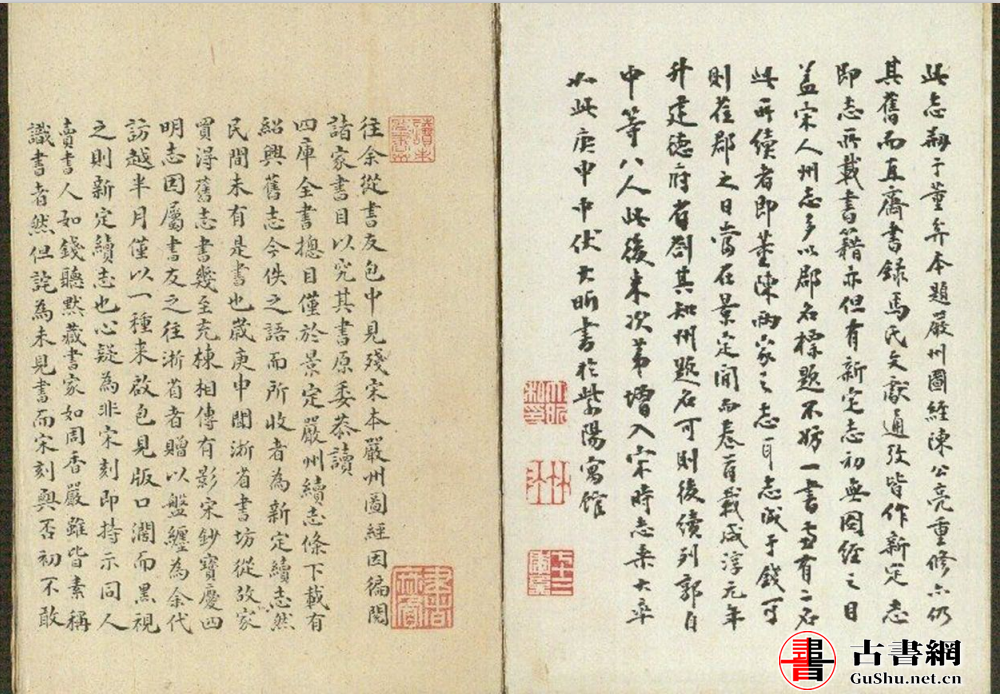 此志剙于董弅本題嚴州圖經陳公亮重修亦仍
其舊而直齋書録馬氏文獻通攷皆作新定志
即志所載書籍亦但有新定志初無圖經之目
葢宋人州志多以郡名標題不妨一書而有二名
此所續者即董陳兩家之志耳志成于錢可
則莅郡之日當在景定間而卷首載咸淳元年
升建德府省劄其知州題名可則後續列郭自
中等八人此後来次第增入宋時志乘大率
如此庚申中伏大昕書於紫陽寓館
大昕私印
竹汀
往余從書友包中見殘宋本嚴州圖經因徧閱
諸家書目以究其書原委恭讀
四庫全書揔目僅於景定嚴州續志條下載有
紹興舊志今佚之語而所收者為新定續志然
民間未有是書也歲庚申聞浙省書坊從故家
買淂舊志書幾至充棟相傳有影宋鈔寶慶四
明志因屬書友之往浙省者贈以盤纏為余代
訪越半月僅以一種来啟包見版口濶而黑視
之則新定續志也心疑為非宋刻即持示同人
賣書人如錢聽默藏書家如周香嚴雖皆素稱
識書者然但詫為未見書而宋刻與否初不敢
書 古書網
GuShu.net.cn